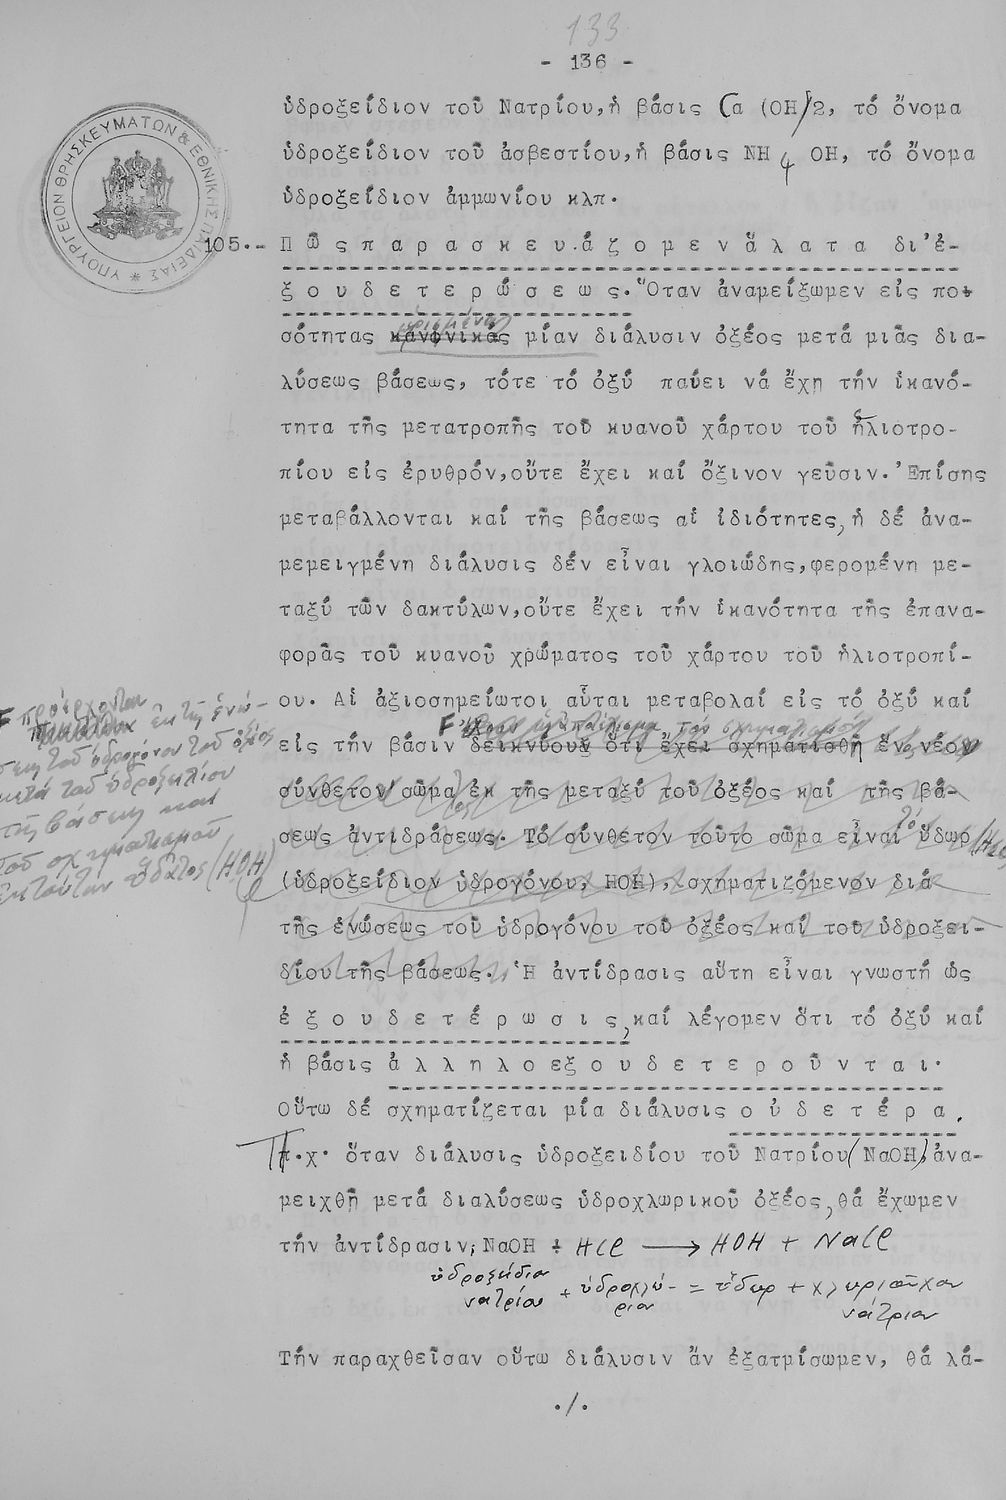 133
- 136 -
ὑδροξείδιον τοῦ Νατρίου, ἡ βάσις Ca (OH)2, τό ὄνομα
ὑδροξείδιον τοῦ ἀσβεστίου, ἡ βάσις NH 4 OH, τό ὄνομα
ὑδροξείδιον ἀμμωνίου κλπ.
ΥΠΟΥΡΓΕΙΟΝ ΘΡΗΣΚΕΥΜΑΤΩΝ & ΕΘΝΙΚΗΣ ΠΑΙΔΕΙΑΣ
105.- Πῶς παρασκευάζομεν ἅλατα δι' ἐ-
ξουδετερώσεως. Ὅταν ἀναμείξωμεν εἰς πο-
ὡρισμένας
σότητας κανονικάς μίαν διάλυσιν ὀξέος μετά μιᾶς δια-
λύσεως βάσεως, τότε τό ὀξύ παύει νά ἔχῃ τήν ἱκανό-
τητα τῆς μετατροπῆς τοῦ κυανοῦ χάρτου τοῦ ἡλιοτρο-
πίου εἰς ἐρυθρόν, οὔτε ἔχει καί ὄξινον γεῦσιν. Ἐπίσης
μεταβάλλονται καί τῆς βάσεως αἱ ἰδιότητες, ἡ δέ ἀνα-
μεμειγμένη διάλυσις δέν εἶναι γλοιώδης, φερομένη με-
ταξύ τῶν δακτύλων, οὔτε ἔχει τήν ἱκανότητα τῆς ἐπανα-
φορᾶς τοῦ κυανοῦ χρώματος τοῦ χάρτου τοῦ ἡλιοτροπί-
ου. Αἱ ἀξιοσημείωτοι αὗται μεταβολαί εἰς τό ὀξύ καί
ἀποτέλεσμα τοῦ σχηματισμοῦ
εἰς τήν βάσιν δεικνύουν ὅτι ἔχει σχηματισθῇ ἕν νέον
σύνθετον σῶμα ἐκ τῆς μεταξύ τοῦ ὀξέος καί τῆς βά-
σεως ἀντιδράσεως. Τό σύνθετον τοῦτο σῶμα εἶναι τό ὕδωρ (H2O)
(ὑδροξείδιον ὑδρογόνου, HOH), σχηματιζόμενον διά
τῆς ἑνώσεως τοῦ ὑδρογόνου τοῦ ὀξέος καί τοῦ ὑδροξει-
δίου τῆς βάσεως. Ἡ ἀντίδρασις αὕτη εἶναι γνωστή ὡς
ἐξουδετέρωσις, καί λέγομεν ὅτι τό ὀξύ καί
ἡ βάσις ἀλληλοεξουδετεροῦνται.
Οὕτω δέ σχηματίζεται μία διάλυσις οὐδετέρα.
Π.χ. ὅταν διάλυσις ὑδροξειδίου τοῦ Νατρίου (NaOH) ἀνα-
μειχθῇ μετά διαλύσεως ὑδροχλωρικοῦ ὀξέος, θά ἔχωμεν
τήν ἀντίδρασιν; NaOH + HCl → HOH + NaCl
ὑδροξείδιον νατρίου + ὑδροχλώριον = ὕδωρ + χλωριοῦχον νάτριον
Τήν παραχθεῖσαν οὕτω διάλυσιν ἄν ἐξατμίσωμεν, θά λά-
./.
προέρχονται
ἐκ τῆς ἑνώ-
σεως τοῦ ὑδρογόνου τοῦ ὀξέος
μετά τοῦ ὑδροξειλίου
τῆς βάσεως καί
τοῦ σχηματισμοῦ
ἐκ τούτων ὕδατος (HOH)